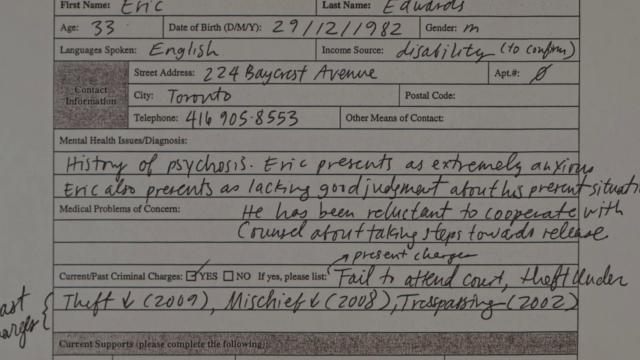 First Name: Eric Last Name: Edwards
Age: 33 Date of Birth (D/M/Y): 29/12/1982 Gender: m
Languages Spoken: English Income Source: disability (to confirm)
Contact Information
Street Address: 224 Baycrest Avenue Apt.#: Ø
City: Toronto Postal Code:
Telephone: 416 905-8553 Other Means of Contact:
Mental Health Issues/Diagnosis:
History of psychosis. Eric presents as extremely anxious
Eric also presents as lacking good judgment about his present situati
Medical Problems of Concern: He has been reluctant to cooperate with
Counsel about taking steps towards release
present charges
Current/Past Criminal Charges: ☑ YES ☐ NO If yes, please list: Fail to attend court, theft under
ast
arges { Theft ↓ (2009), Mischief ↓ (2008), Trespassing (2002)
Current Supports (please complete the following):